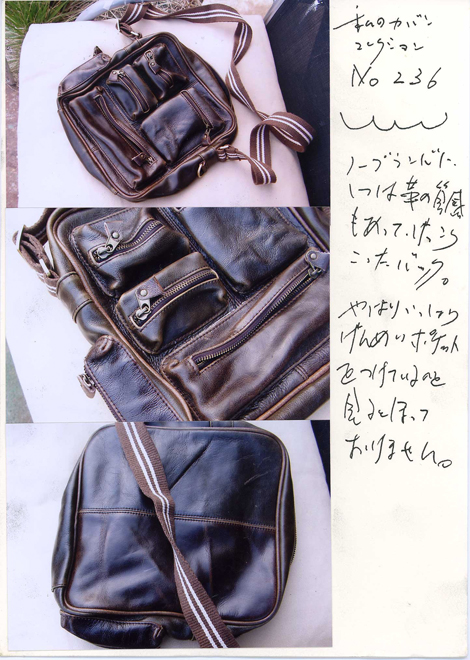 私のカバン
コレクション
No 236
ノーブランドだ、
しつは革の質感
もあって、けっこう
こったバック。
やはりいっしょう
けんめいポケット
をつけているのを
見るとほって
おけません。